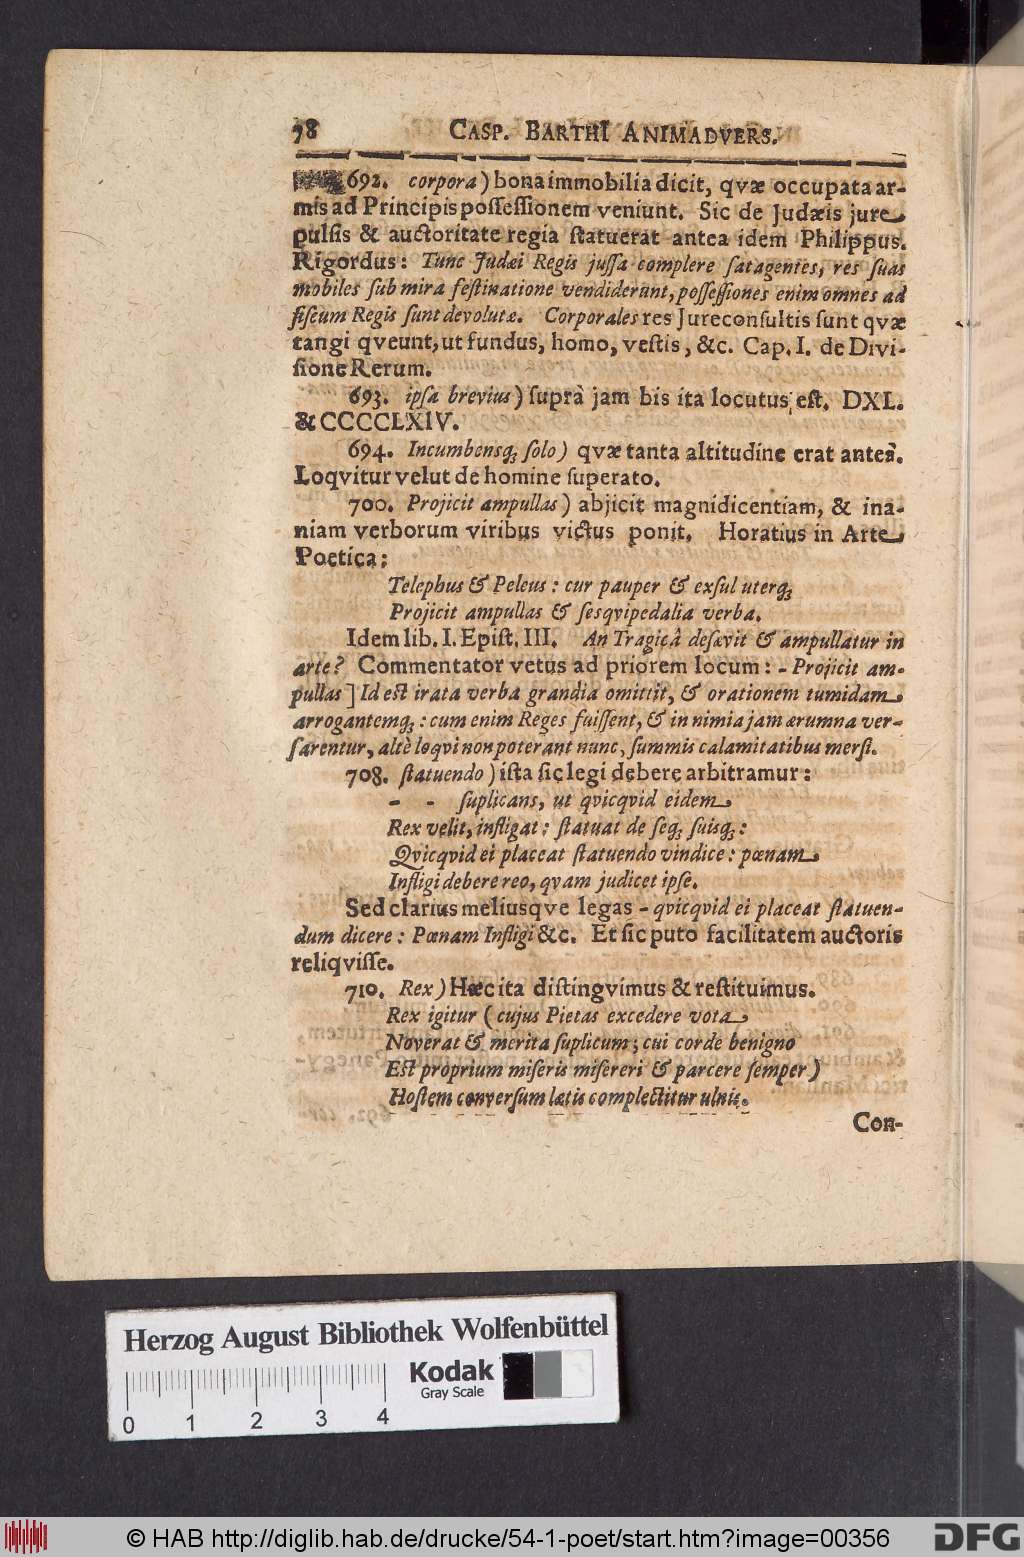 78 CASP. BARTHI ANIMADVERS.
692. corpora) bona immobilia dicit, qvæ occupata ar-
mis ad Principis possessionem veniunt. Sic de Judæis jure
pulsis & auctoritate regia statuerat antea idem Philippus.
Rigordus: Tunc Judæi Regis jussa complere satagentes, res suas
mobiles sub mira festinatione vendiderunt, possessiones enim omnes ad
fiscum Regis sunt devolutæ. Corporales res Jureconsultis sunt qvæ
tangi qveunt, ut fundus, homo, vestis, &c. Cap. I. de Divi-
sione Rerum.
693. ipsa brevius) suprà jam bis ita locutus est. DXL.
& CCCCLXIV.
694. Incumbensq; solo) qvæ tanta altitudine erat antea.
Loqvitur velut de homine superato.
700. Projicit ampullas) abjicit magnidicentiam, & ina-
niam verborum viribus victus ponit. Horatius in Arte
Poetica:
Telephus & Peleus: cur pauper & exsul uterq;
Projicit ampullas & sesqvipedalia verba.
Idem lib. I. Epist. III. An Tragicâ desævit & ampullatur in
arte? Commentator vetus ad priorem locum: - Projicit am-
pullas] Id est irata verba grandia omittit, & orationem tumidam
arrogantemq; : cum enim Reges fuissent, & in nimia jam ærumna ver-
sarentur, altè loqvi non poterant nunc, summis calamitatibus mersi.
708. statuendo) ista sic legi debere arbitramur:
- - suplicans, ut qvicqvid eidem
Rex velit, infligat: statuat de seq; suisq; :
Qvicqvid ei placeat statuendo vindice: pœnam
Infligi debere reo, qvam judicet ipse.
Sed clarius meliusqve legas - qvicqvid ei placeat statuen-
dum dicere: Pœnam Infligi &c. Et sic puto facilitatem auctoris
reliqvisse.
710. Rex) Hæc ita distingvimus & restituimus.
Rex igitur (cujus Pietas excedere vota
Noverat & merita suplicum; cui corde benigno
Est proprium miseris misereri & parcere semper)
Hostem conversum lætis complectitur ulnis.
Con-
Herzog August Bibliothek Wolfenbüttel
Kodak
Gray Scale
0 1 2 3 4
© HAB http://diglib.hab.de/drucke/54-1-poet/start.htm?image=00356
DFG